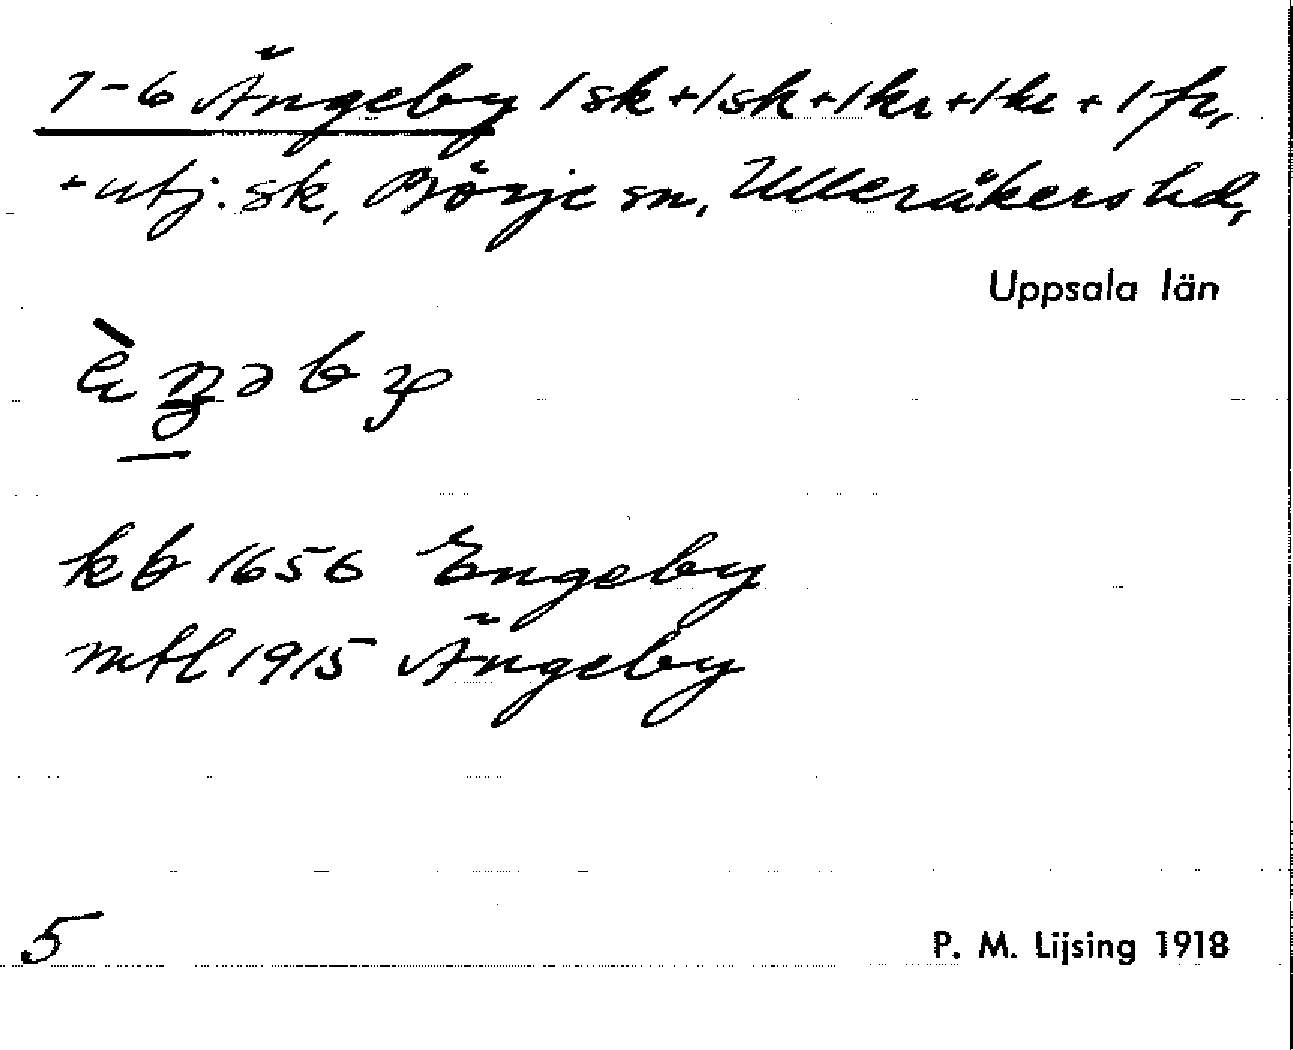 1-6 Ängeby 1 sk + 1 sk + 1 kr + 1 kr + 1 fr,
+ utj. sk, Börje sn, Ulleråkers hd,
Uppsala län
kb 1656 Engeby
mtl 1915 Ängeby
5
P. M. Lijsing 1918